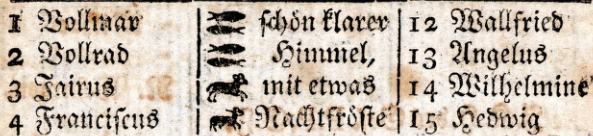 1 Vollmar schön klarer 12 Wallfried
2 Vollrad Himmel, 13 Angelus
3 Jairus mit etwas 14 Wilhelmine
4 Franciscus Nachtfröste 15 Hedwig